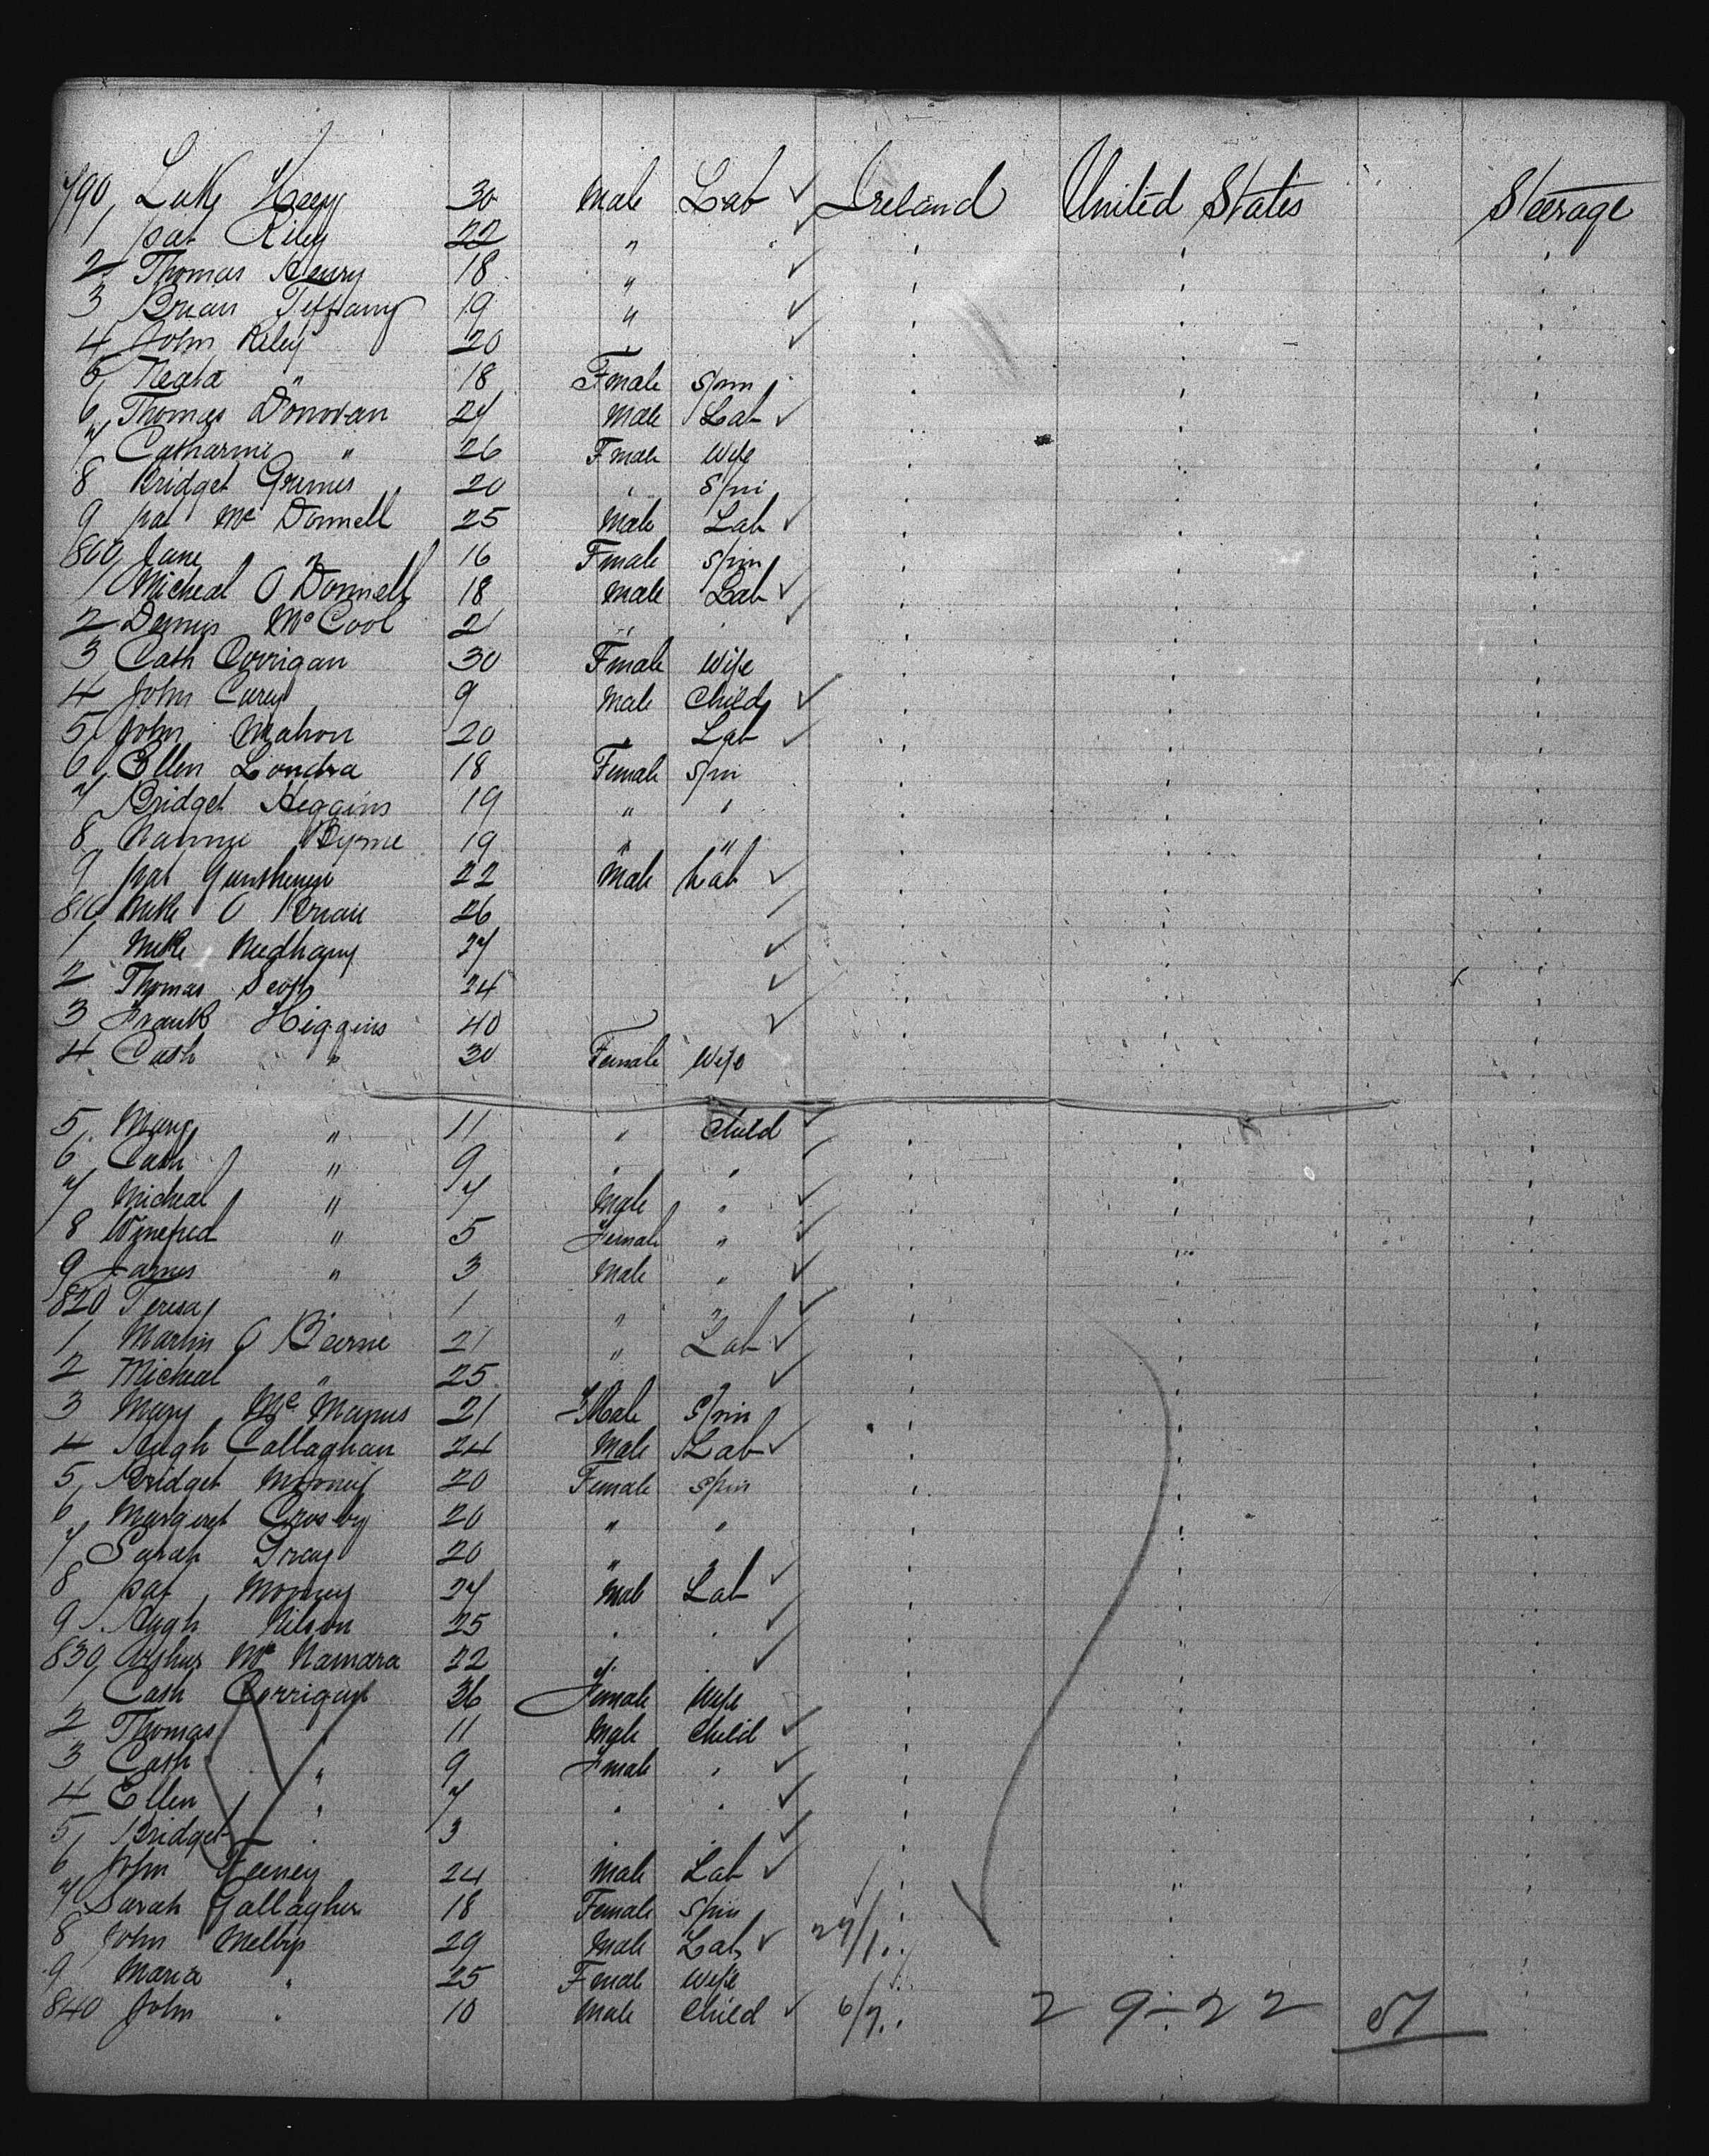 790 Luke Keey 30 Male Lab ✓ Ireland United States Steerage
1 Pat Riley 22 " ✓
2 Thomas Henry 18 " ✓
3 Brian Teffany 19 " ✓
4 John Riley 20 " ✓
5 " 18 Fmale Spin
6 Thomas Donovan 27 Male Lab ✓
7 Catharine " 26 Fmale Wife
8 Bridget Grimes 20 " Spin
9 Pat Mc Donnell 25 Male Lab ✓
800 Jane " 16 Fmale Spin
1 Micheal O Donnell 18 Male Lab ✓
2 Dennis McCool 21 " ✓
3 Cath Corrigan 30 Fmale Wife
4 John Carey 9 Male Child ✓
5 John Mahon 20 " Lab ✓
6 Ellen Londra 18 Female Spin
7 Bridget Higgins 19 " "
8 Nannie Byrne 19 " "
9 Pat 22 Male Lab ✓
810 Mike O Brian 26 ✓
1 Mike 27 ✓
2 Thomas Scott 24 ✓
3 Frank Higgins 40 ✓
4 Cath " 30 Female Wife
5 Mary " 11 " Child ✓
6 Cath " 9 " " ✓
7 Micheal " 7 Male " ✓
8 Winefred " 5 Female " ✓
9 James " 3 Male " ✓
820 Teresa 1 " " ✓
1 Martin O Beirne 21 " Lab ✓
2 Micheal " 25 ✓
3 Mary Mc Manus 21 FMale Spin
4 Hugh Callaghan 24 Male Lab ✓
5 Bridget Mooney 20 Female Spin
6 Margaret Crosby 20 " "
7 Sarah Gray 20 " "
8 Pat Mooney 27 Male Lab ✓
9 Hugh Nilson 25 " " ✓
830 Arthur Mc Namara 22 " " ✓
1 Cath Corrigan 36 Female Wife
2 Thomas " 11 Male Child ✓
3 Cath " 9 Fmale " ✓
4 Ellen " 7 " " ✓
5 Bridget " 3 " " ✓
6 John Feeney 24 Male Lab ✓
7 Sarah Gallagher 18 Female Spin
8 John 29 Male Lab ✓ 27/1
9 Maria " 25 Fmale Wife
840 John " 10 Male Child ✓ 6/7 29-22 51